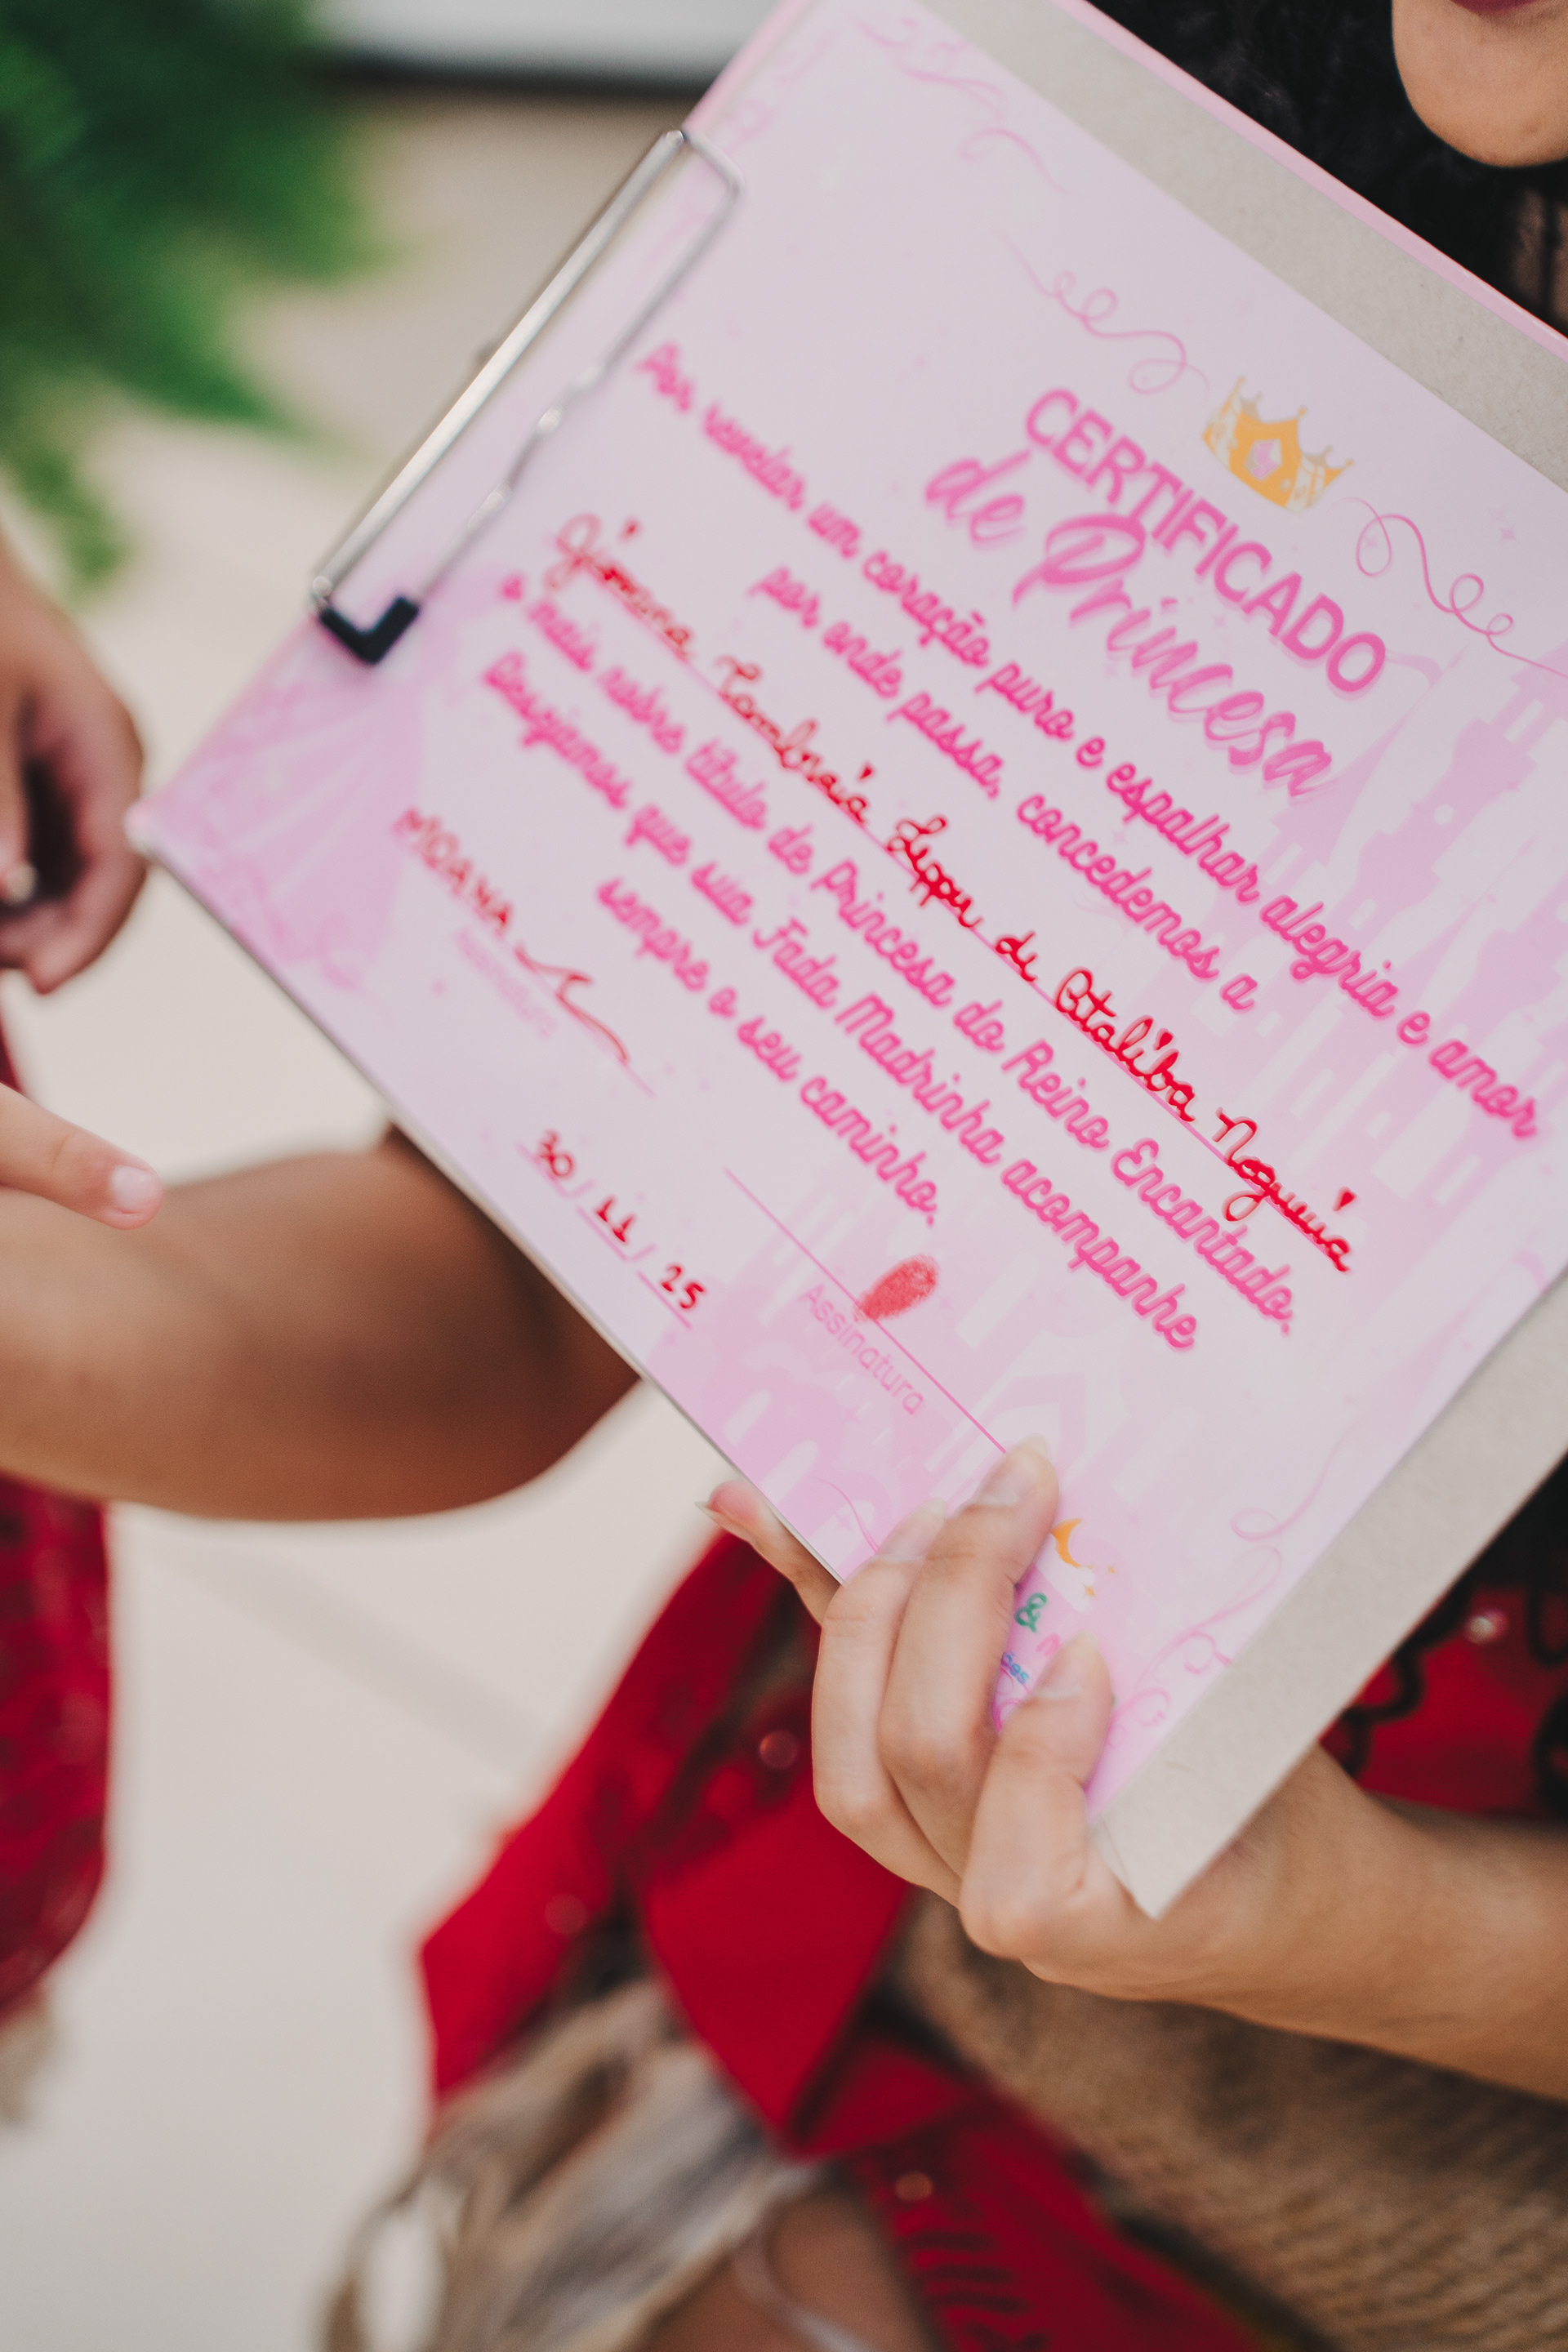 CERTIFICADO
de Princesa
Por revelar um coração puro e espalhar alegria e amor
por onde passa, concedemos a
Lippi de Ataliba Nogueira
o mais nobre título de Princesa do Reino Encantado.
Desejamos que sua Fada Madrinha acompanhe
sempre o seu caminho.
MOANA
Assinatura
Assinatura
30 / 11 / 25
&
ões